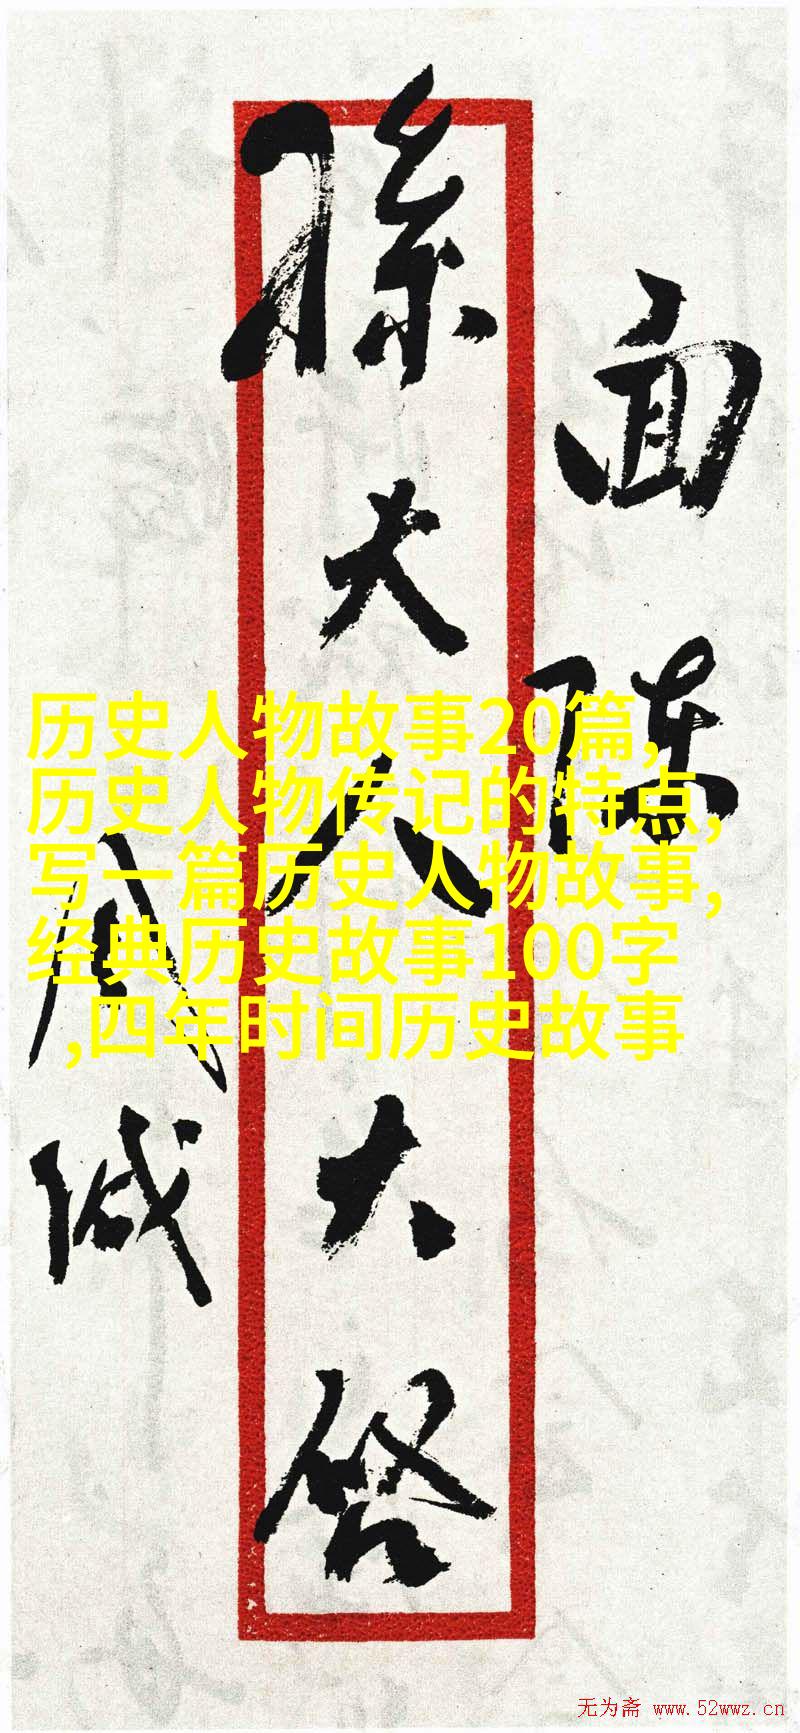 面陈
孫大人大啓
周缄
历史人物故事20篇,
历史人物传记的特点,
写一篇历史人物故事,
经典历史故事100字
,四年时间历史故事
无为斋 www.52wwz.cn